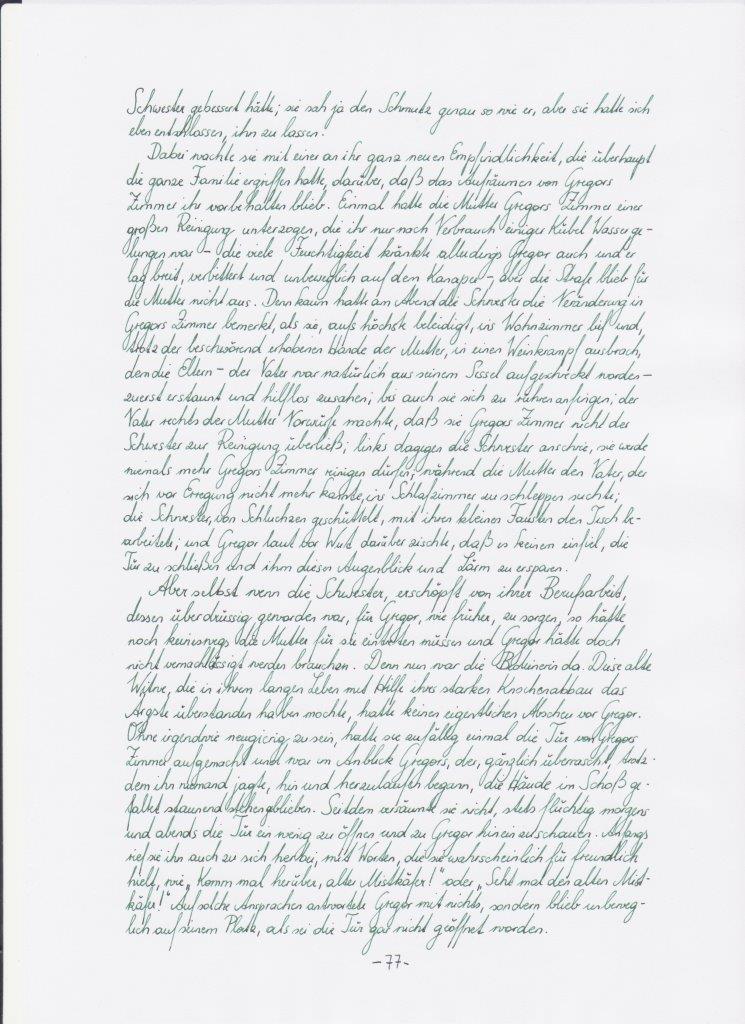 Schwester gebessert hätte; sie sah ja den Schmutz genau so wie er, aber sie hatte sich
eben entschlossen, ihn zu lassen.
Dabei wachte sie mit einer an ihr ganz neuen Empfindlichkeit, die überhaupt
die ganze Familie ergriffen hatte, darüber, daß das Aufräumen von Gregors
Zimmer ihr vorbehalten blieb. Einmal hatte die Mutter Gregors Zimmer einer
großen Reinigung unterzogen, die ihr nur nach Verbrauch einiger Kübel Wasser ge-
lungen war – die viele Feuchtigkeit kränkte allerdings Gregor auch und er
lag breit, verbittert und unbeweglich auf dem Kanapee –, aber die Strafe blieb für
die Mutter nicht aus. Denn kaum hatte am Abend die Schwester die Veränderung in
Gregors Zimmer bemerkt, als sie, aufs höchste beleidigt, ins Wohnzimmer lief und,
trotz der beschwörend erhobenen Hände der Mutter, in einen Weinkrampf ausbrach,
dem die Eltern – der Vater war natürlich aus seinem Sessel aufgeschreckt worden –
zuerst erstaunt und hilflos zusahen; bis auch sie sich zu rühren anfingen; der
Vater rechts der Mutter Vorwürfe machte, daß sie Gregors Zimmer nicht der
Schwester zur Reinigung überließ; links dagegen die Schwester anschrie, sie werde
niemals mehr Gregors Zimmer reinigen dürfen; während die Mutter den Vater, der
sich vor Erregung nicht mehr kannte, ins Schlafzimmer zu schleppen suchte;
die Schwester, von Schluchzen geschüttelt, mit ihren kleinen Fäusten den Tisch be-
arbeitete; und Gregor laut vor Wut darüber zischte, daß es keinem einfiel, die
Tür zu schließen und ihm diesen Augenblick und Lärm zu ersparen.
Aber selbst wenn die Schwester, erschöpft von ihrer Berufsarbeit,
dessen überdrüssig geworden war, für Gregor, wie früher, zu sorgen, so hätte
noch keineswegs die Mutter für sie eintreten müssen und Gregor hätte doch
nicht vernachlässigt werden brauchen. Denn nun war die Bedienerin da. Diese alte
Witwe, die in ihrem langen Leben mit Hilfe ihres starken Knochenabbau das
Ärgste überstanden haben mochte, hatte keinen eigentlichen Abscheu vor Gregor.
Ohne irgendwie neugierig zu sein, hatte sie zufällig einmal die Tür von Gregors
Zimmer aufgemacht und war im Anblick Gregors, der, gänzlich überrascht, trotz-
dem ihn niemand jagte, hin und herzulaufen begann, die Hände im Schoß ge-
faltet staunend stehengeblieben. Seitdem versäumte sie nicht, stets flüchtig morgens
und abends die Tür ein wenig zu öffnen und zu Gregor hineinzuschauen. Anfangs
rief sie ihn auch zu sich herbei, mit Worten, die sie wahrscheinlich für freundlich
hielt, wie „Komm mal herüber, alter Mistkäfer!" oder „Seht mal den alten Mist-
käfer!" Auf solche Ansprachen antwortete Gregor mit nichts, sondern blieb unbeweg-
lich auf seinem Platz, als sei die Tür gar nicht geöffnet worden.
- 77 -